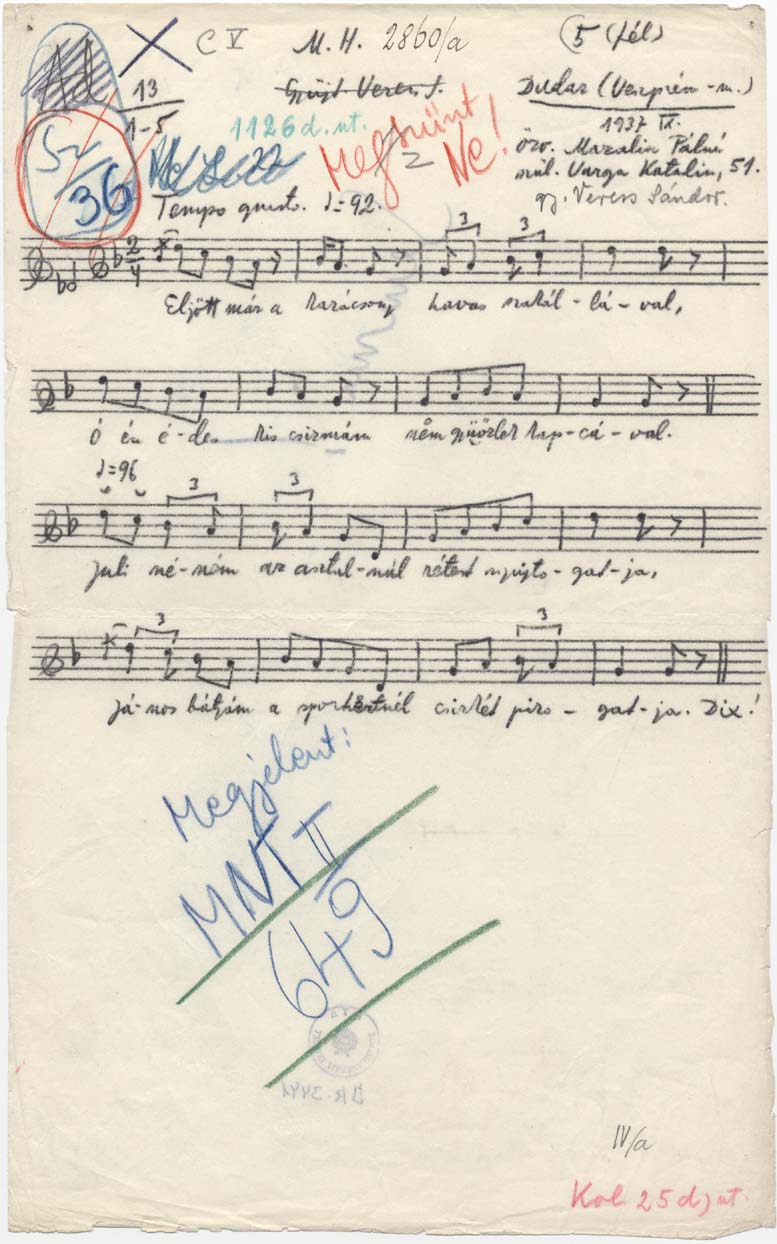 Ad
C V
M. H. 2860/a
5 (fél)
13
1-5
Gyűjt. Veress S.
Dudar (Veszprém-m.)
1126 d. nt.
Megszünt
Ne!
1937 IX.
özv. Mazalin Pálné
szül. Varga Katalin, 51.
gy. Veress Sándor.
Sz
36
Tempo giusto. ♩=92.
2
4
3 3
Eljött már a karácsony havas szakál-lá-val,
Ó én é-des kis csizmám nëm győzlek kap-cá-val.
♩=96
3 3
Juli né-ném az asztal-nál rétest nyujto-gat-ja,
3 3
Já-nos bátyám a sporhertnél csirkét piro-gat-ja. Dix!
Megjelent:
MNT II
649
IV/a
Kol. 25 dj nt.